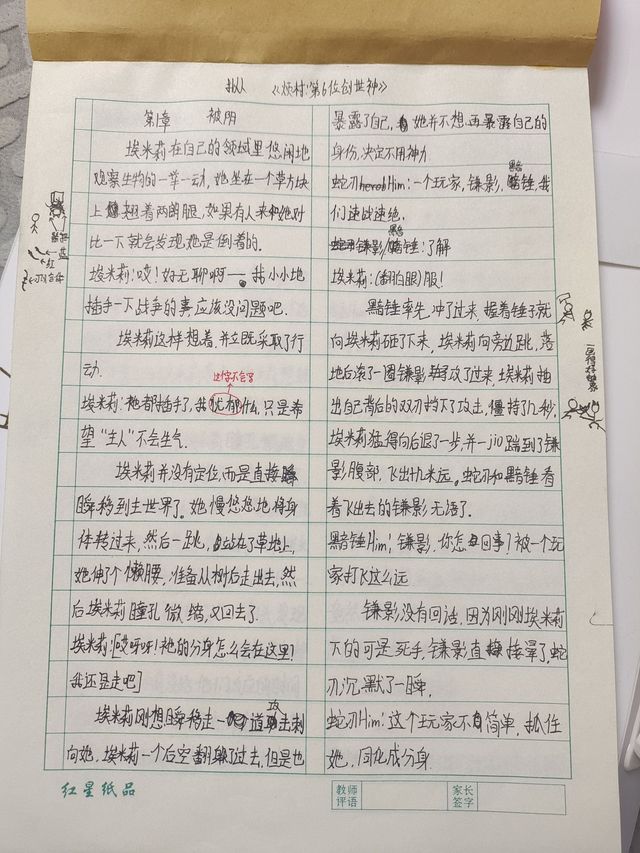 拟 《烦村:第6位创世神》
第1章 被阴
埃米莉在自己的领域里悠闲地
观察生物的一举一动,她坐在一个草方块
上翘着两的腿,如果有人来和她对
比一下就会发现她是倒着的.
埃米莉:哎!好无聊啊一。我小小地
插手一下战争的事应该没问题吧.
埃米莉这样想着.并立既采取了行
动.
这字不会写
埃米莉:祂都插手了,我忧郁什么.只是希
望“主人”不会生气.
埃米莉并没有定位,而是直接
瞬移到主世界了.她慢悠悠地将身
体转过来,然后一跳,站在了草地上,
她伸了个懒腰,准备从树后走出去,然
后埃米莉瞳孔微缩,又回去了.
埃米莉:[哎呀呀!祂的分身怎么会在这里!
我还是走吧]
埃米莉刚想瞬移走一道攻击刺
向她,埃米莉一个后空翻躲了过去,但是也
暴露了自己,她并不想再暴露自己的
身份,决定不用神力.
蛇刃Him:一个玩家,镰影,黯锤,我
们速战速绝.
镰影/黯锤:了解
埃米莉:(翻白眼)服!
黯锤率先,冲了过来,握着锤子就
向埃米莉砸了下来,埃米莉向旁边跳,落
地后滚了一圈镰影攻了过来,埃米莉抽
出自己背后的双刃挡下了攻击,僵持了几秒.
埃米莉猛得向后退了一步,并一jio踹到了镰
影腹部,飞出十几米远,蛇刃和黯锤看
着飞出去的镰影无语了.
黯锤Him:镰影,你怎回事!被一个玩
家打飞这么远
镰影没有回话,因为刚刚埃米莉
下的可是死手,镰影直接晕了,蛇
刃沉默了一瞬,
蛇刃Him:这个玩家不简单,抓住
她,同化成分身.
红星纸品
教师
评语
家长
签字